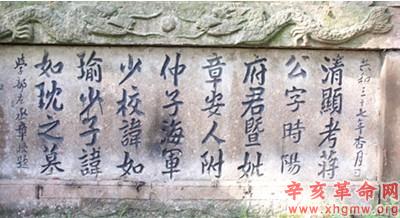 共和三十七年杏月
清顯考蔣
公字時陽
府君暨妣
章安人附
仲子海軍
少校諱如
瑜少子諱
如珫之墓
學部左丞題
辛亥革命网
www.xhgmw.org